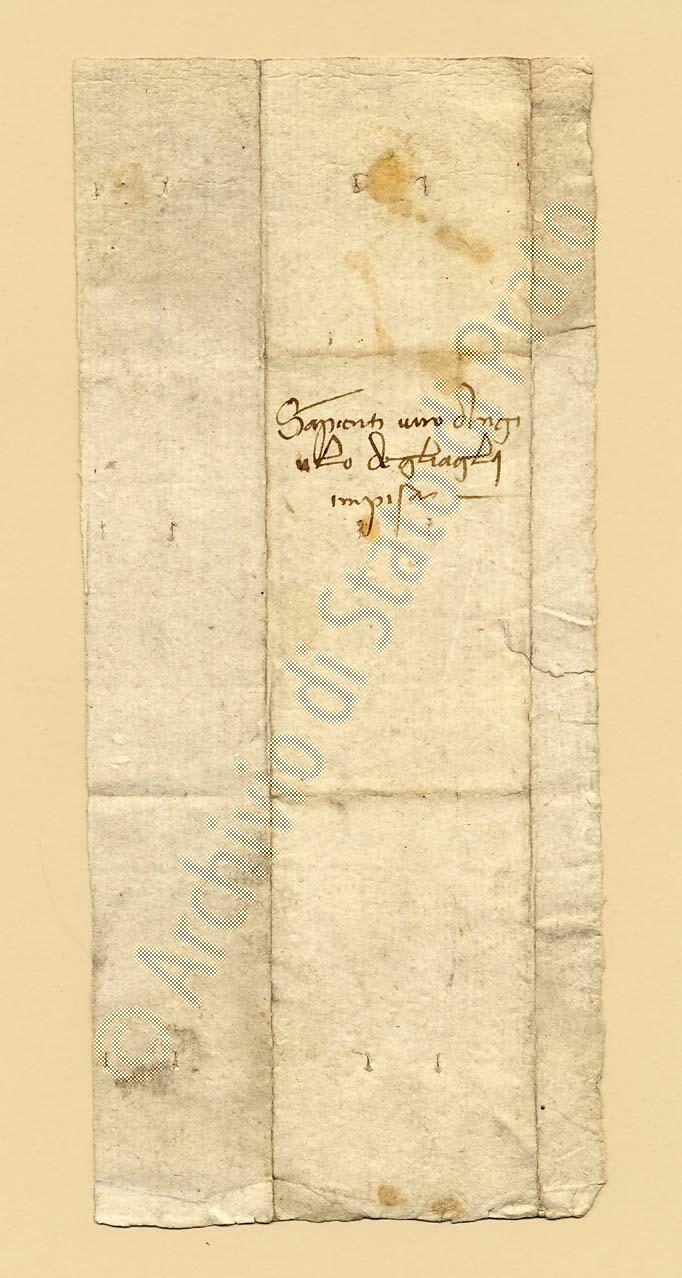 Sapienti viro d'angi
olo degliagli
impisa
© Archivio di Stato di Prato